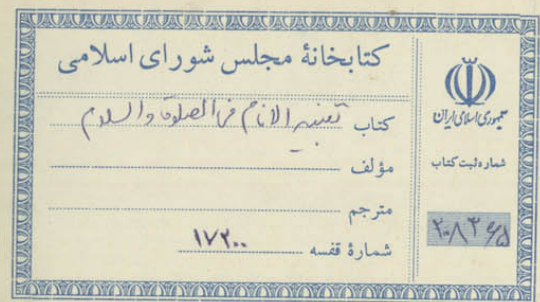 کتابخانهٔ مجلس شورای اسلامی
کتاب تنبیه الانام فی الصلوة والسلام
مؤلف
مترجم
شمارهٔ قفسه ۱۷۲۰۰
جمهوری اسلامی ایران
شماره ثبت کتاب
۲۰۸۳۶۵